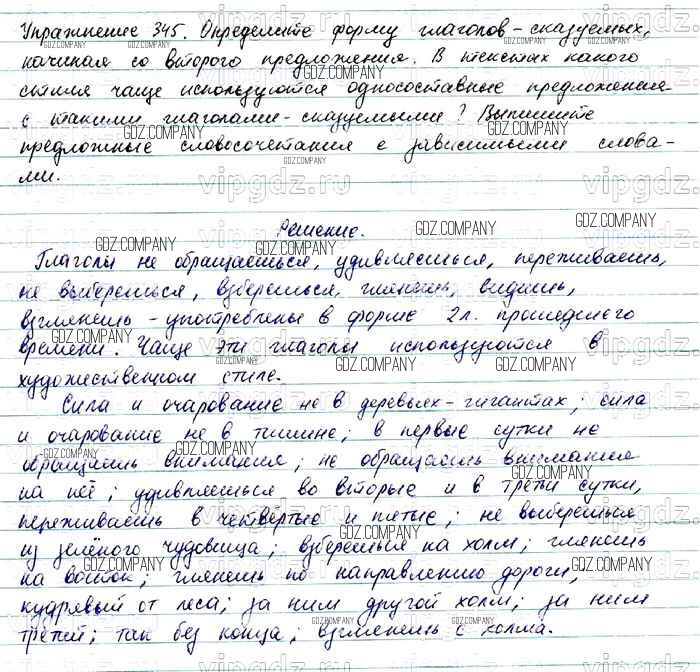 Упражнение 345. Определите форму глаголов-сказуемых,
начиная со второго предложения. В текстах какого
стиля чаще используются односоставные предложения
с такими глаголами-сказуемыми? Выпишите
предложные словосочетания с зависимыми слова-
ми.
Решение.
Глаголы не обращаешься, удивляешься, переживаешь,
не выберешься, взберешься, глянешь, видишь,
взглянешь - употреблены в форме 2л. прошедшего
времени. Чаще эти глаголы используются в
художественном стиле.
Сила и очарование не в деревьях-гигантах; сила
и очарование не в тишине; в первые сутки не
обращаешь внимания; не обращаешь внимания
на неё; удивляешься во вторые и в третьи сутки,
переживаешь в четвёртые и пятые; не выберешься
из зелёного чудовища; взберешься на холм; глянешь
на восток; глянешь по направлению дороги,
кудрявый от леса; за ним другой холм; за ним
третий; так без конца; взглянешь с холма.
GDZ.COMPANY
vipgdz.ru